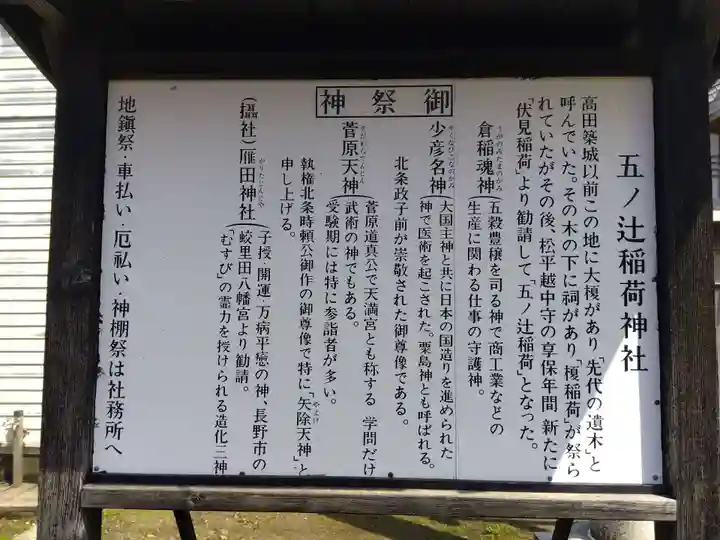 五ノ辻稲荷神社
高田築城以前この地に大榎があり「先代の遺木」と
呼んでいた。その木の下に祠があり「榎稲荷」が祭ら
れていたがその後、松平越中守の享保年間 新たに
「伏見稲荷」より勧請して「五ノ辻稲荷」となった。
御祭神
倉稲魂神(五穀豊穣を司る神で商工業などの
うがのみたまのかみ
生産に関わる仕事の守護神。
少彦名神(大国主神と共に日本の国造りを進められた
すくなひこなのかみ
神で医術を起こされた。粟島神とも呼ばれる。
北条政子前が崇敬された御尊像である。
菅原天神(菅原道真公で天満宮とも称する 学問だけ
武術の神でもある。
受験期には特に参詣者が多い。
執権北条時頼公御作の御尊像で特に「矢除天神」と
やよけ
申し上げる。
(攝社)雁田神社(子授・開運・万病平癒の神、長野市の
かりたじんじゃ
鮫里田八幡宮より勧請。
「むすび」の霊力を授けられる造化三神
地鎮祭・車払い・厄祓い・神棚祭は社務所へ